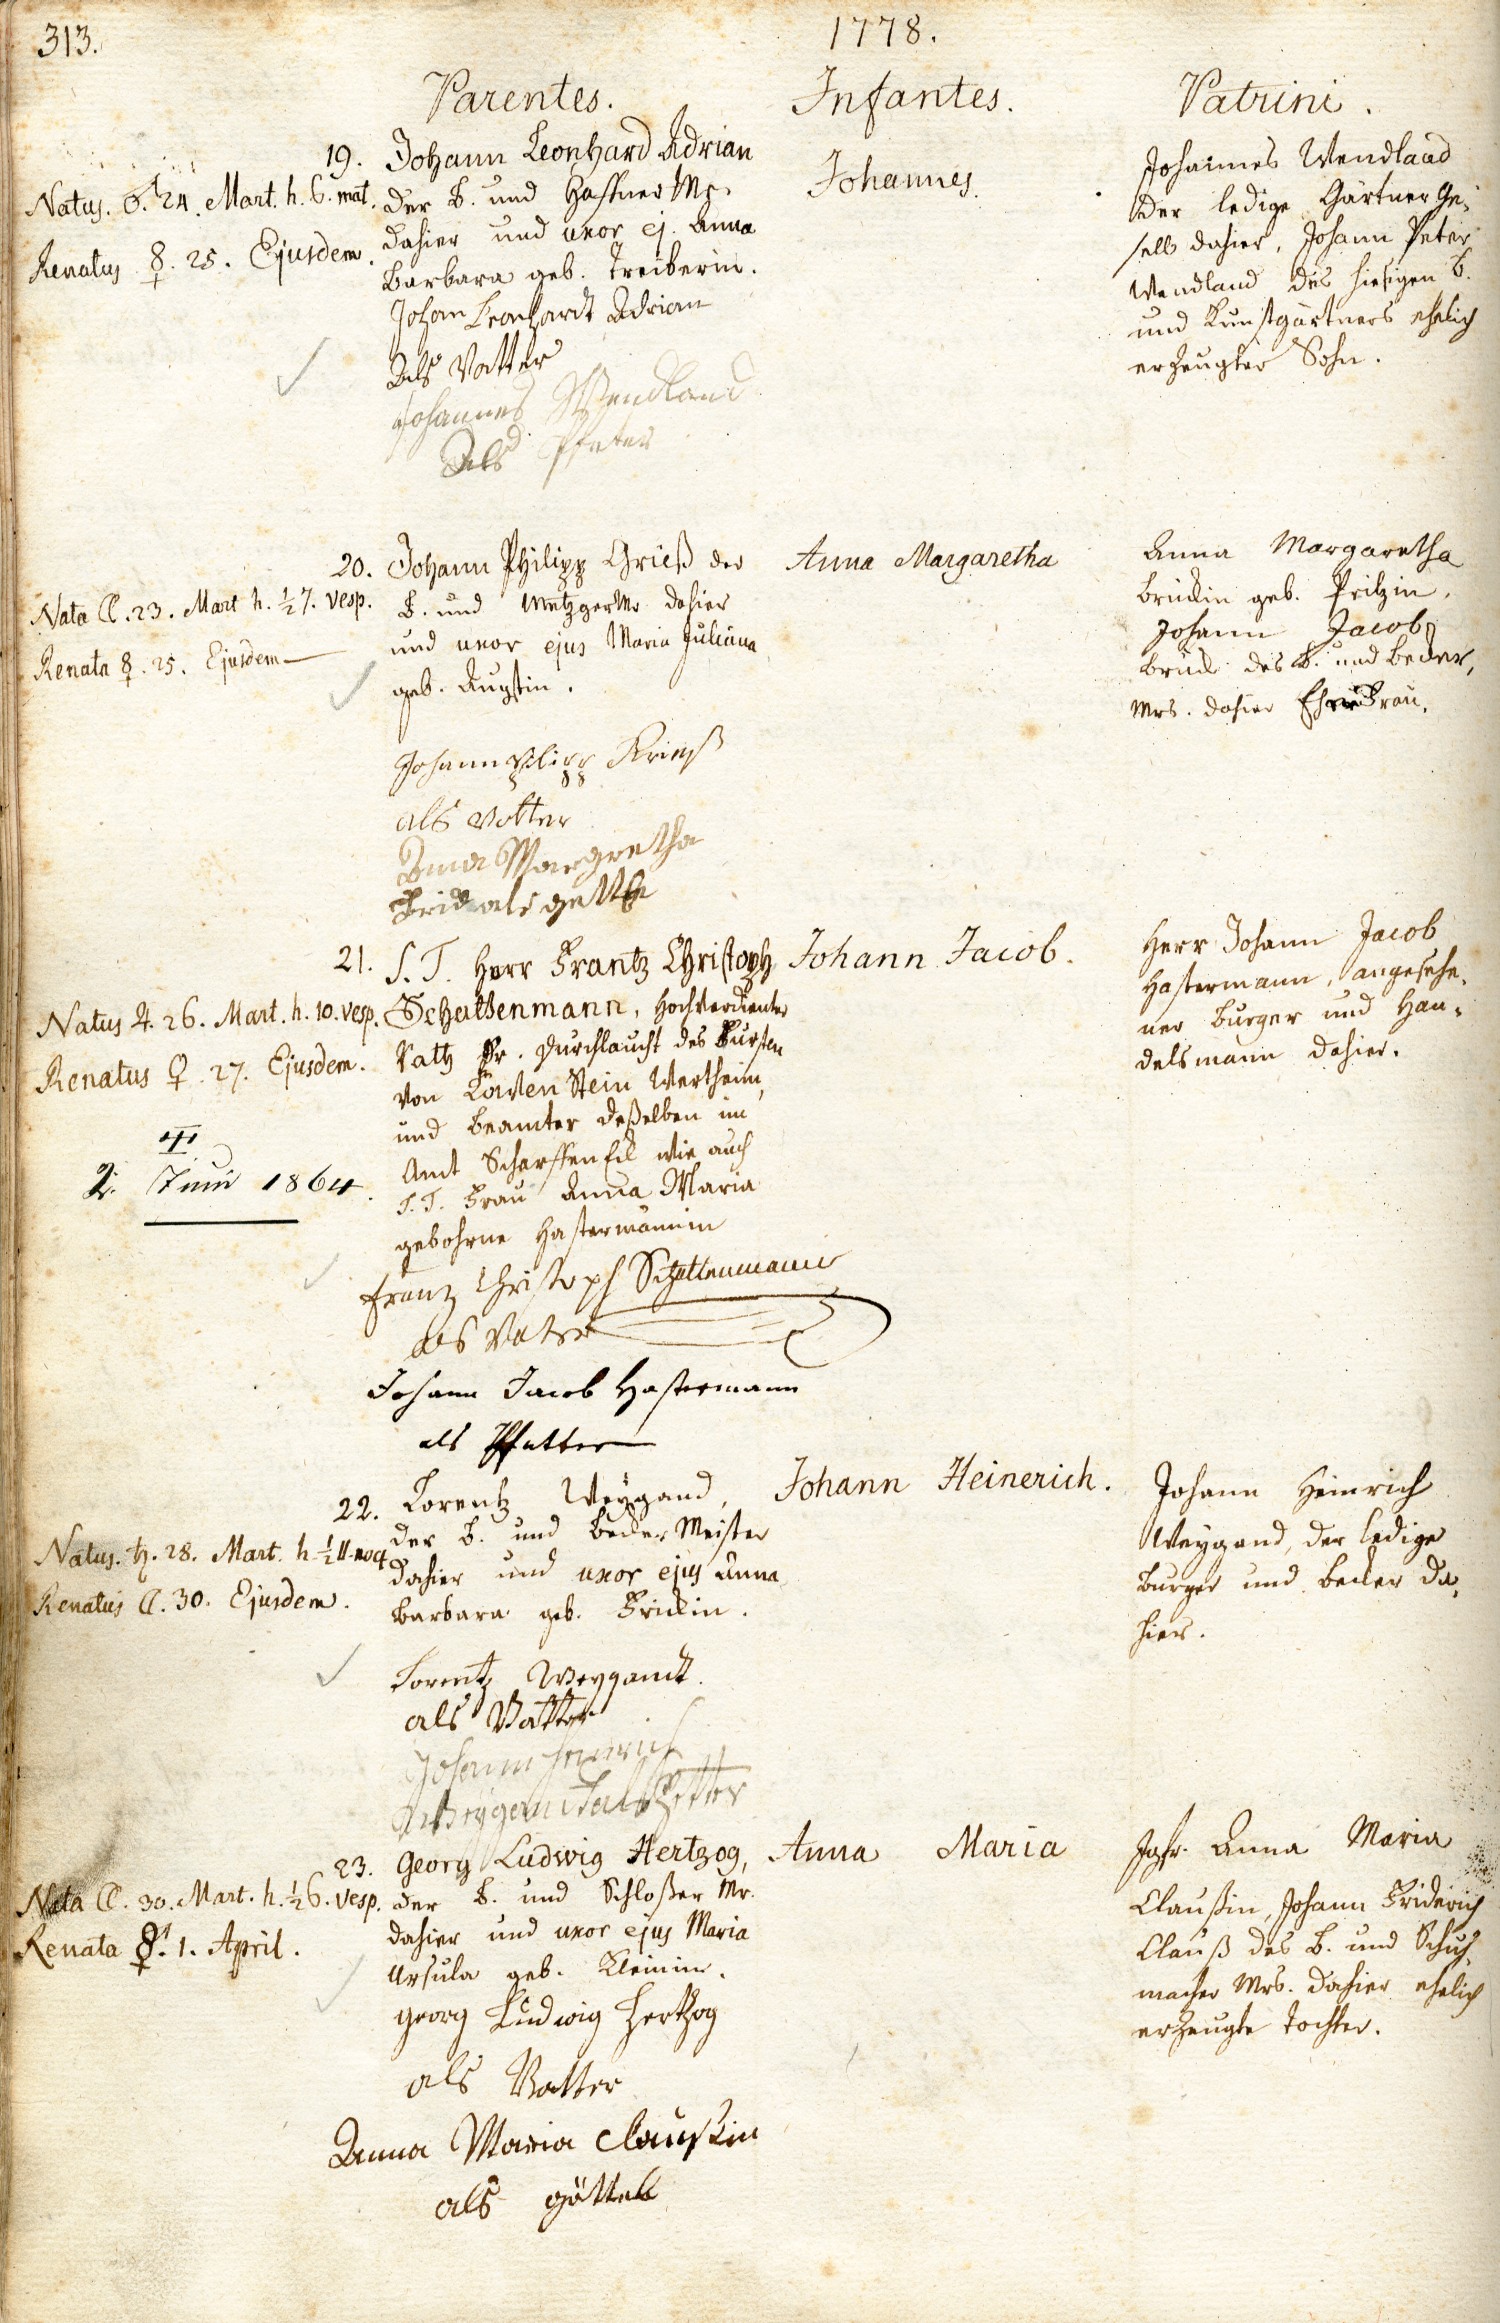 313.
1778.
Parentes.
Infantes.
Patrini.
19.
Natus. ♂. 24. Mart. h. 6. mat.
Renatus ☿. 25. Ejusdem.
Johann Leonhard Adrian
der B. und Haffner Mr.
dahier und uxor ej. Anna
Barbara geb. Treiberin.
Johan Leonhardt Adrian
Als Vatter
Johannes Wendland
Als Pfeter
Johannes.
Johannes Wendland
der ledige Gärtner Ge-
sell dahier, Johann Peter
Wendland des hiesigen B.
und Kunstgärtners ehelich
erzeugter Sohn.
20.
Nata ☾. 23. Mart h. ½ 7. vesp.
Renata ☿. 25. Ejusdem
Johann Philipp Grieß der
B. und Metzger Mr dahier
und uxor ejus Maria Juliana
geb. Augstin.
Johann Philipp Krieß
als Vatter
Anna Margretha
als
Anna Margaretha
Anna Margaretha
Brückin geb. Pritzin,
Johann Jacob
Brück des B. und Becker,
Mrs. dahier Frau.
21.
Natus ♃. 26. Mart. h. 10. vesp.
Renatus ♀. 27. Ejusdem.
2. Juni 1864.
S. T. Herr Frantz Christoph
Schattenmann, Hochverdienter
Rath Sr. Durchlaucht des Fürsten
von Löwenstein Wertheim,
und Beamter deßelben im
Amt Scharffeneck wie auch
S. T. Frau Anna Maria
gebohrne Hastermännin
Franz Christoph Schattenmann
als Vater
Johann Jacob Hastermann
als Pfetter
Johann Jacob.
Herr Johann Jacob
Hastermann, angesehe-
ner Burger und Han-
delsmann dahier.
22.
Natus. ♄. 28. Mart. h ½ 11. noct.
Renatus ☾. 30. Ejusdem.
Lorentz Weygand,
der B. und Becker Meister
dahier und uxor ejus Anna
Barbara geb. Frickin.
Lorentz Weygandt
als Vatter
Johann Heinrich
Weygandt als Petter
Johann Heinerich.
Johann Heinrich
Weygand, der ledige
Burger und Becker da-
hier.
23.
Nata ☾. 30. Mart. h. ½ 6. vesp.
Renata ☿. 1. April.
Georg Ludwig Hertzog,
der B. und Schloßer Mr.
dahier und uxor ejus Maria
Ursula geb. Kleinin.
Georg Ludwig Hertzog
als Vatter
Anna Maria Claußin
als göttel
Anna Maria
Jgfr. Anna Maria
Claußin, Johann Friderich
Clauß des B. und Schuh-
macher Mrs. dahier ehelich
erzeugte Tochter.